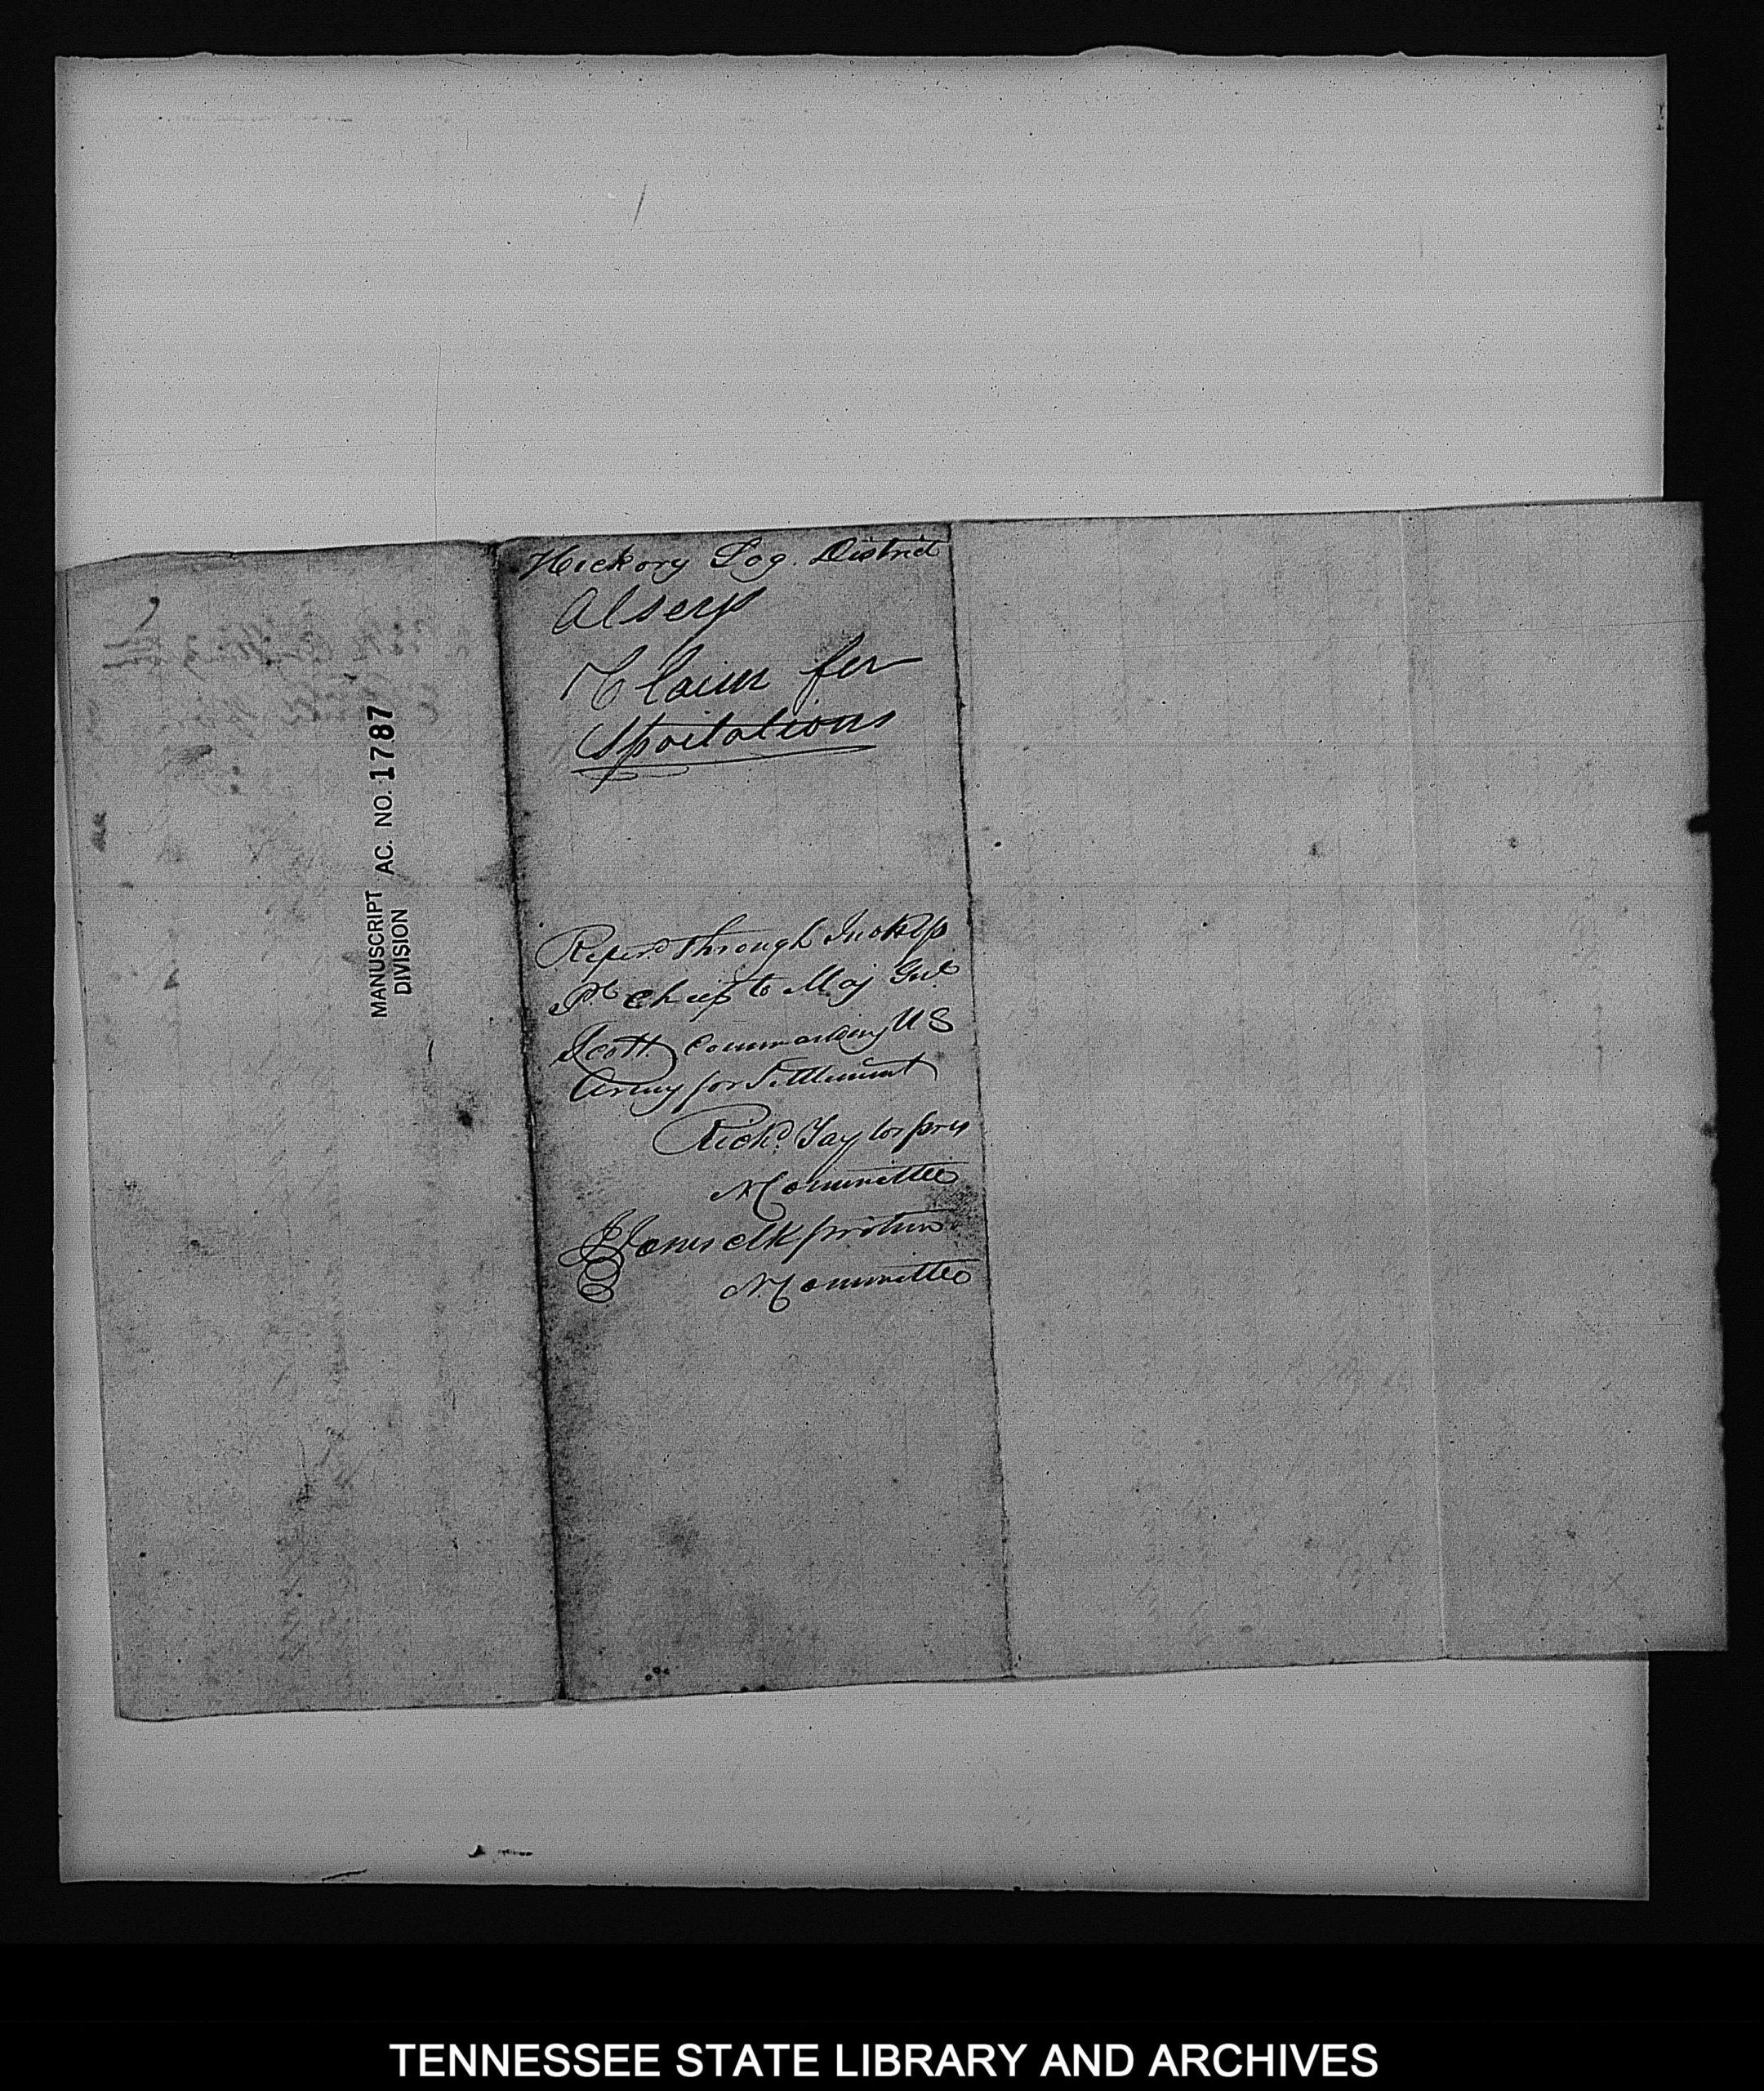 Hickory Log. District
Alsey
Claim for
Spoilations
Refer.d through Jno Ross
Pl Chief to Maj Gnl
Scott Commanding US
Army for Settlement
Richd. Taylor pres
N. Committee
Jones clk protem
N. Committee
MANUSCRIPT AC. NO. 1787
DIVISION
TENNESSEE STATE LIBRARY AND ARCHIVES